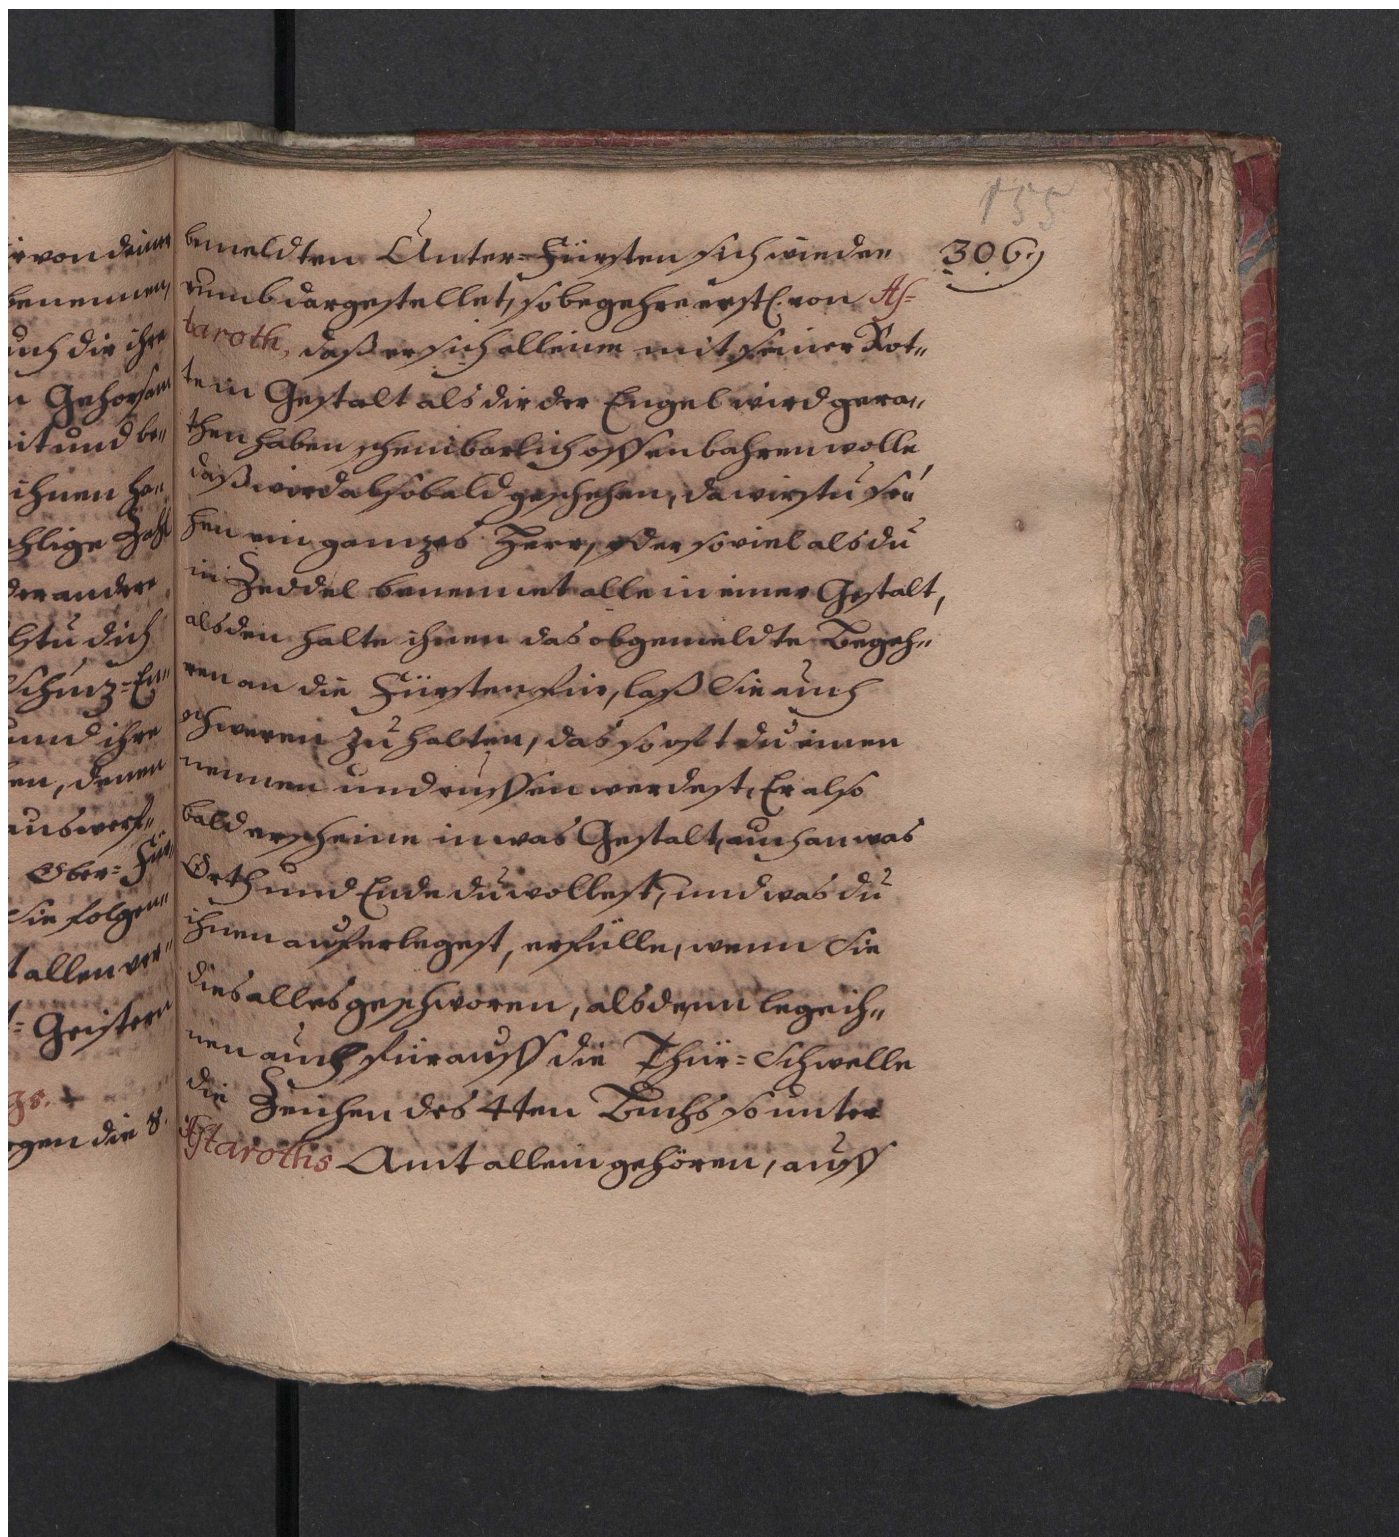 155
306
ir von deiner
benennen,
auch die ihre
n Gehorsam
eit und be„
ihnen ha„
ehlige Zahl
der andere
lstu dich
Schuz-En„
und ihre
en, denen
auswerf„
Ober-Für„
Sie folgen„
t allen ver„
t-Geistern
gen die 8.
bemeldten Unter-Fürsten sich wieder
rumb dargestellet, so begehre erstl. von As=
taroth, daß er sich alleine mit seiner Rot„
te in Gestalt als dir der Engel wird gera„
then haben scheinbarlich offenbahren wolle
daß wird alsobald geschehen, da wirstu se„
hen ein ganzes Heer, oder soviel als du
in Zeddel benennet alle in einer Gestalt,
alsden halte ihnen das obgemeldte Begeh„
ren an die Fürsten für, laß Sie auch
schweren zu halten, das so oft du einen
nennen und ruffen werdest, Er also
bald erscheine in was Gestalt, auch an was
Orth und Ende du wollest, und was du
ihnen auferlegest, erfülle, wenn Sie
dies alles geschworen, alsdenn lege ih„
nen auch für auff die Thür-Schwelle
die Zeichen des 4ten Buchs so unter
Astaroths Amt allein gehören, auff